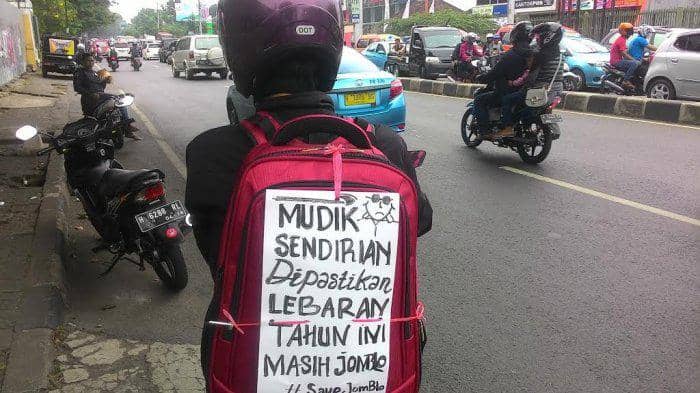 DOT
MUDIK
SENDIRIAN
Dipastikan
LEBARAN
TAHUN INI
MASIH JOMBLO
//Save JomBlo